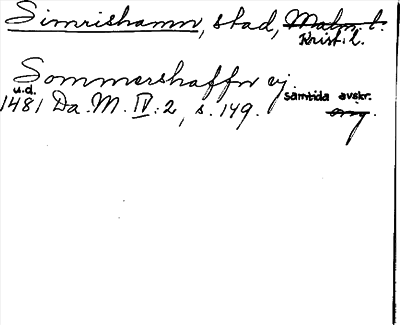 Simrishamn, stad, Malm. l.
Krist: l.
Sommershaffn ej
u.d. samtida avskr.
1481 Da. M. IV: 2, s. 149. orig.